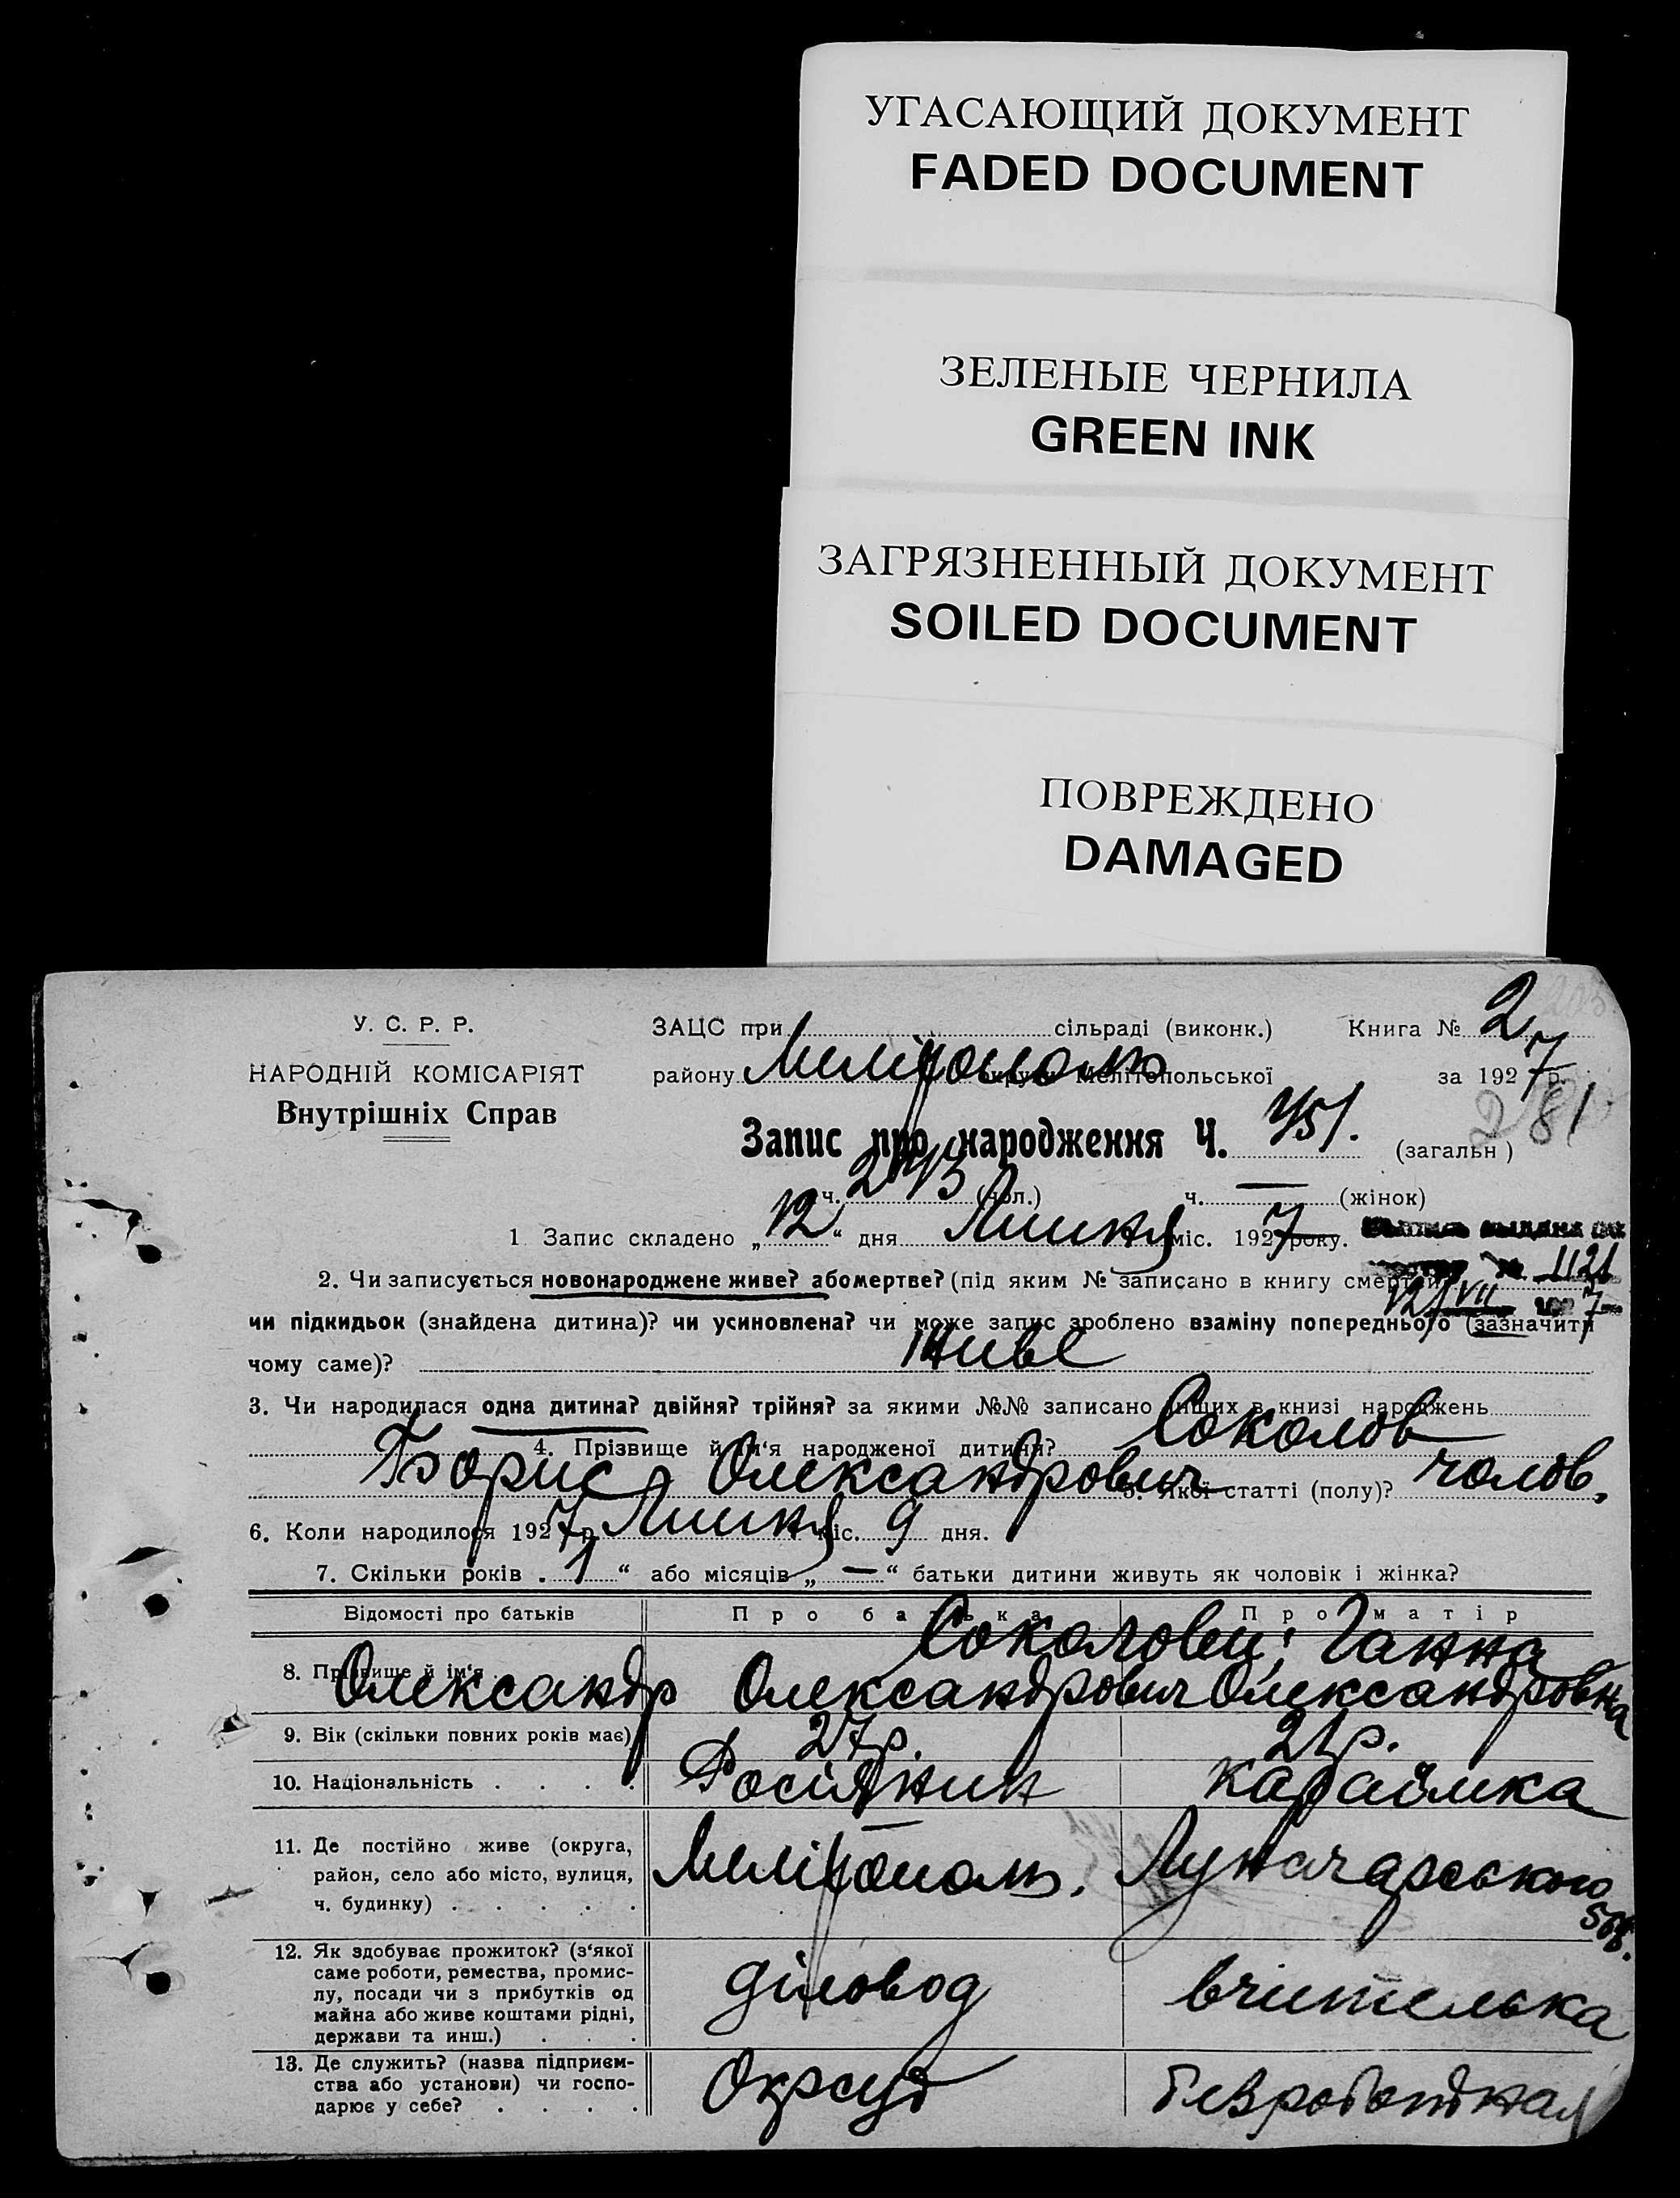 УГАСАЮЩИЙ ДОКУМЕНТ
FADED DOCUMENT
ЗЕЛЕНЫЕ ЧЕРНИЛА
GREEN INK
ЗАГРЯЗНЕННЫЙ ДОКУМЕНТ
SOILED DOCUMENT
ПОВРЕЖДЕНО
DAMAGED
У. С. Р. Р.
НАРОДНІЙ КОМІСАРІЯТ
Внутрішніх Справ
ЗАЦС при сільраді (виконк.) Книга № 2
району Мелітополь округи Мелітопольської за 1927 р.
281
Запис про народження Ч. 451. (загальн)
ч. 243 (чол.) ч. — (жінок)
1 Запис складено „12“ дня Липня міс. 1927 року.
1121
12/VII 1927
2. Чи записується новонароджене живе? або мертве? (під яким № записано в книгу смертей
чи підкидьок (знайдена дитина)? чи усиновлена? чи може запис зроблено взаміну попереднього (зазначити
чому саме)? Живе
3. Чи народилася одна дитина? двійня? трійня? за якими №№ записано инших в книзі народжень
4. Прізвище й ім‘я народженої дитини? Соколов
Борис Олександрович 5. Якої статті (полу)? чолов.
6. Коли народилося 1927 р. Липня міс. 9 дня.
7. Скільки років „1“ або місяців „—“ батьки дитини живуть як чоловік і жінка?
Відомості про батьків Про батька Про матір
8. Прізвище й ім‘я Соколови: Ганна
Олександр Олександрович Олександровна
9. Вік (скільки повних років має) 27 р. 21 р.
10. Національність . . . . Росіянин караїмка
11. Де постійно живе (округа,
район, село або місто, вулиця,
ч. будинку) . . . . . Мелітополь. Луначарського
12. Як здобуває прожиток? (з‘якої
саме роботи, ремества, промис-
лу, посади чи з прибутків од
майна або живе коштами рідні,
держави та инш.) . . . діловод вчителька
13. Де служить? (назва підприєм-
ства або установи) чи госпо-
дарює у себе? . . . . Окрсуд безроботная